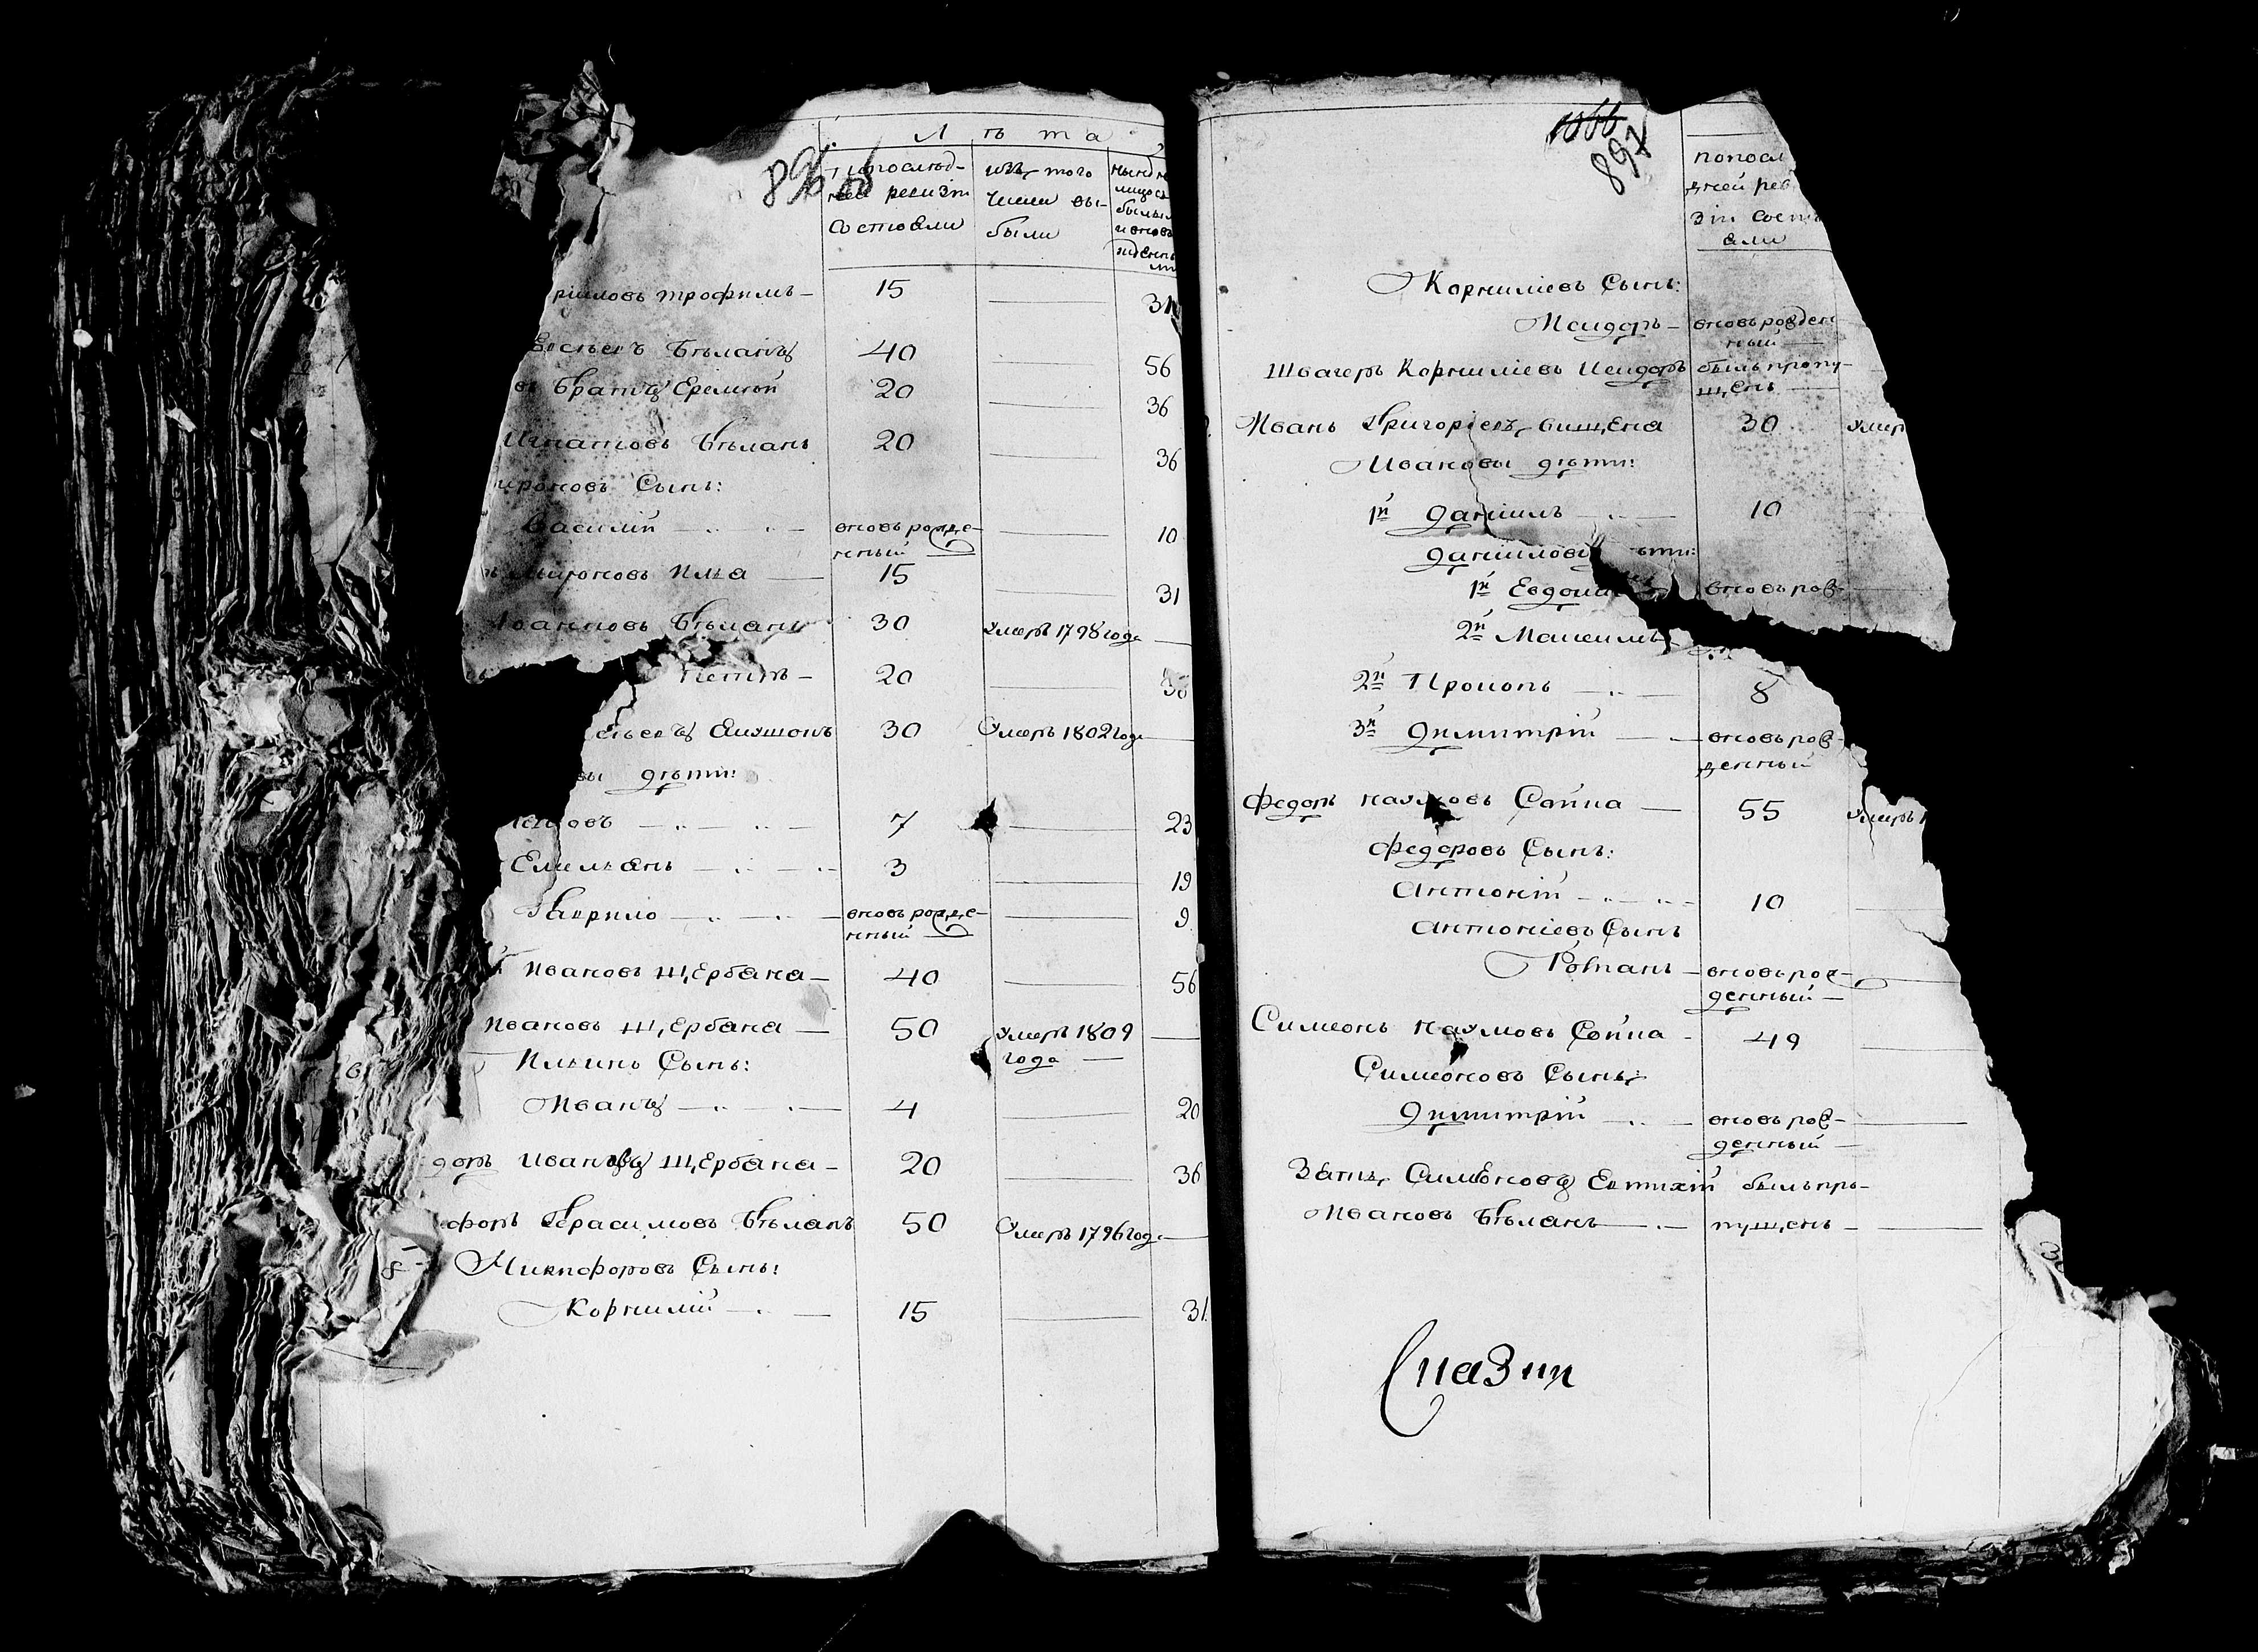 Лѣта
896 об
по послѣд-
ней ревизіи
состояли
изъ того
числа вы-
были
риловъ трофимъ — 15 — 31
Евсѣевъ Бѣланъ 40 — 56
въ братъ Еремѣй 20 — 36
Игнатовъ Бѣланъ 20 — 36
мироновъ Сынъ:
Василій — вновь рожде-
нный — 10
ъ Мироновъ Илья — 15 — 31
Іоанновъ Бѣланъ 30 умеръ 1798 года —
Петръ — 20 — 36
30 Умеръ 1802 года —
вы дѣти:
7 — 23
Емильянъ — 3 — 19
Гаврило — вновь рожде-
нный — 9
й Ивановъ Щербана — 40 — 56
Ивановъ Щербана — 50 умеръ 1809
года —
Ильинъ Сынъ:
Иванъ — 4 — 20
доръ Ивановъ Щербана — 20 — 36
ифоръ Герасимовъ Бѣланъ 50 Умеръ 1796 года —
Никифоровъ Сынъ:
Корнилій — 15 — 31
1066
897
попосл
дней рев
зіи состо
яли
Корниліевъ Сынъ:
Исидоръ — вновь рожден
ный —
Швагеръ Корниліевъ Исидоръ былъ пропу-
щенъ —
Иванъ Григоріевъ вищена 30 умер
Ивановы дѣти:
1й Даніилъ — 10
Даніиловы ѣти:
1й Евдоки вновь рож-
2й Максимъ
2й Прокопъ — 8
3й Димитрій — вновь рож-
денный
Федоръ наумовъ Сопка — 55 умеръ 1
Федоровъ Сынъ:
Антоній — 10
Антоніевъ Сынъ
Романъ — вновь рож-
денный —
Симеонъ наумовъ Сопка - 49
Симеоновъ Сынъ:
Димитрій — вновь рож-
денный —
Зять Симеоновъ Евтихій былъ про-
Ивановъ Бѣланъ — пущенъ —
Сказки